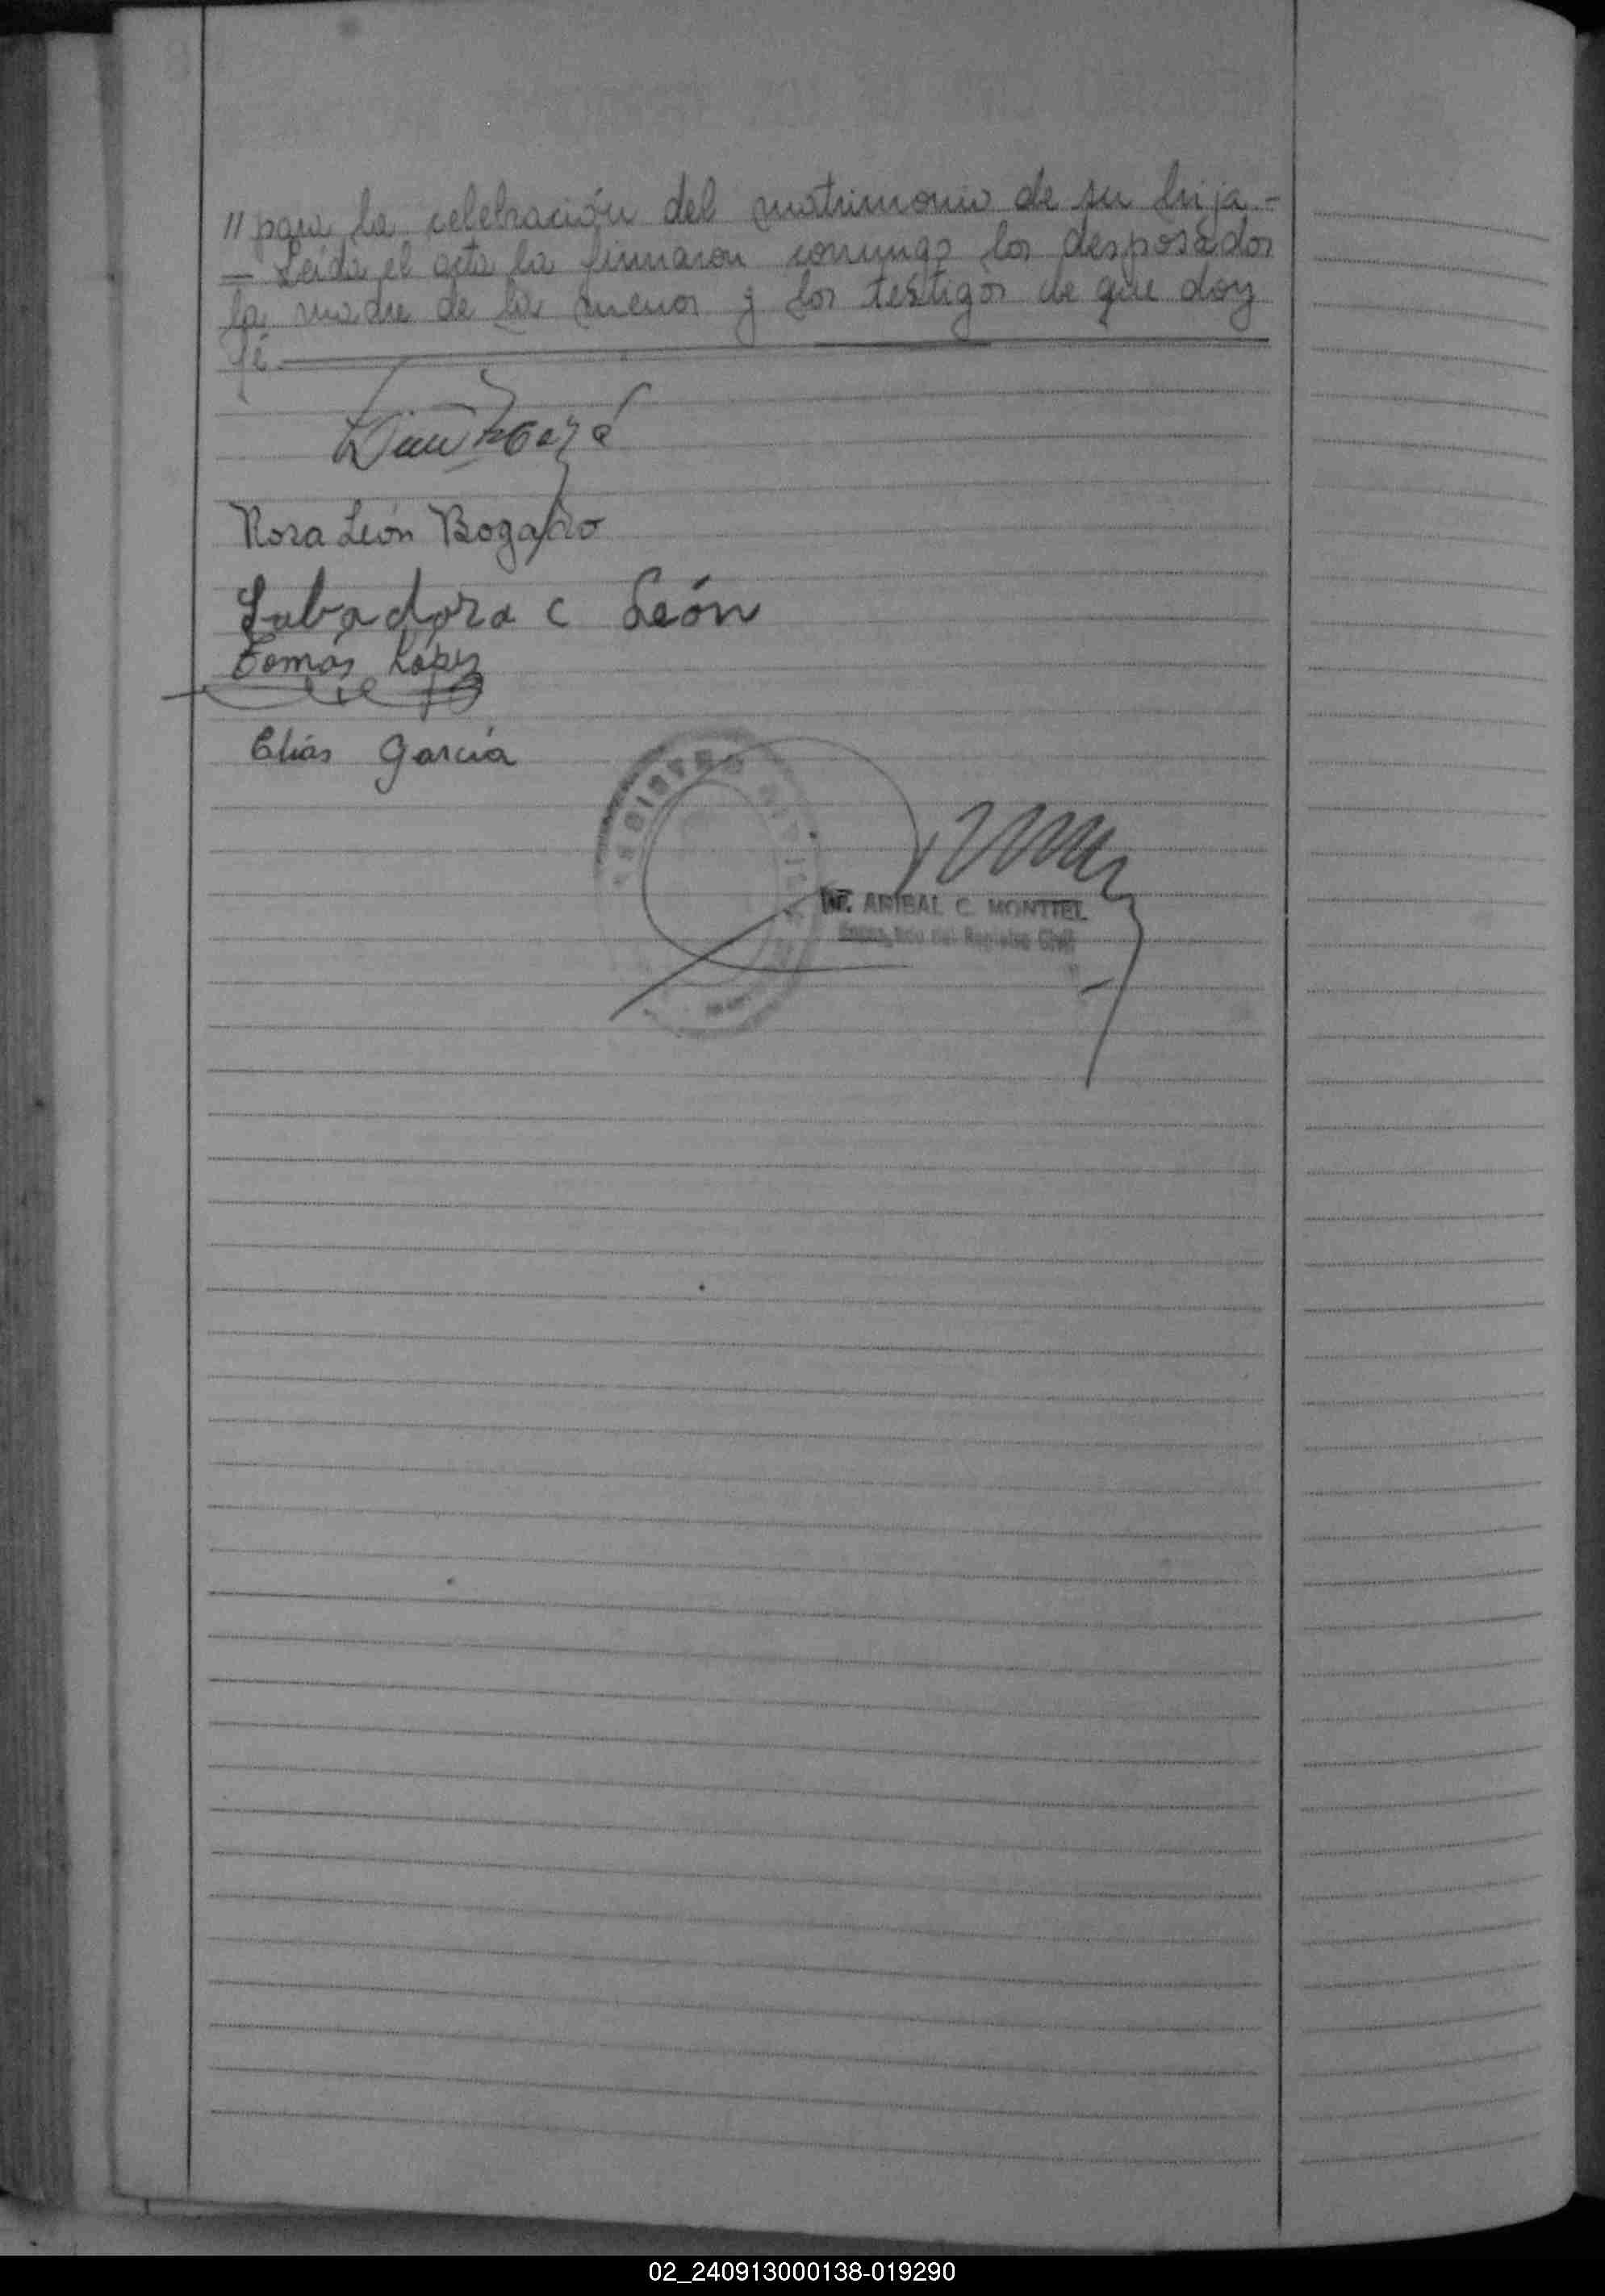 " para la celebración del matrimonio de su hija.-
— Leida el acta la firmaron conmigo los desposados
la madre de la menor y los testigos de que doy
fé
Rosa León Bogado
Sabadora C León
Tomás López
Elias García
REGISTRO CIVIL
Dr. ANIBAL C. MONTIEL
Encargado del Registro Civil
02_240913000138-019290